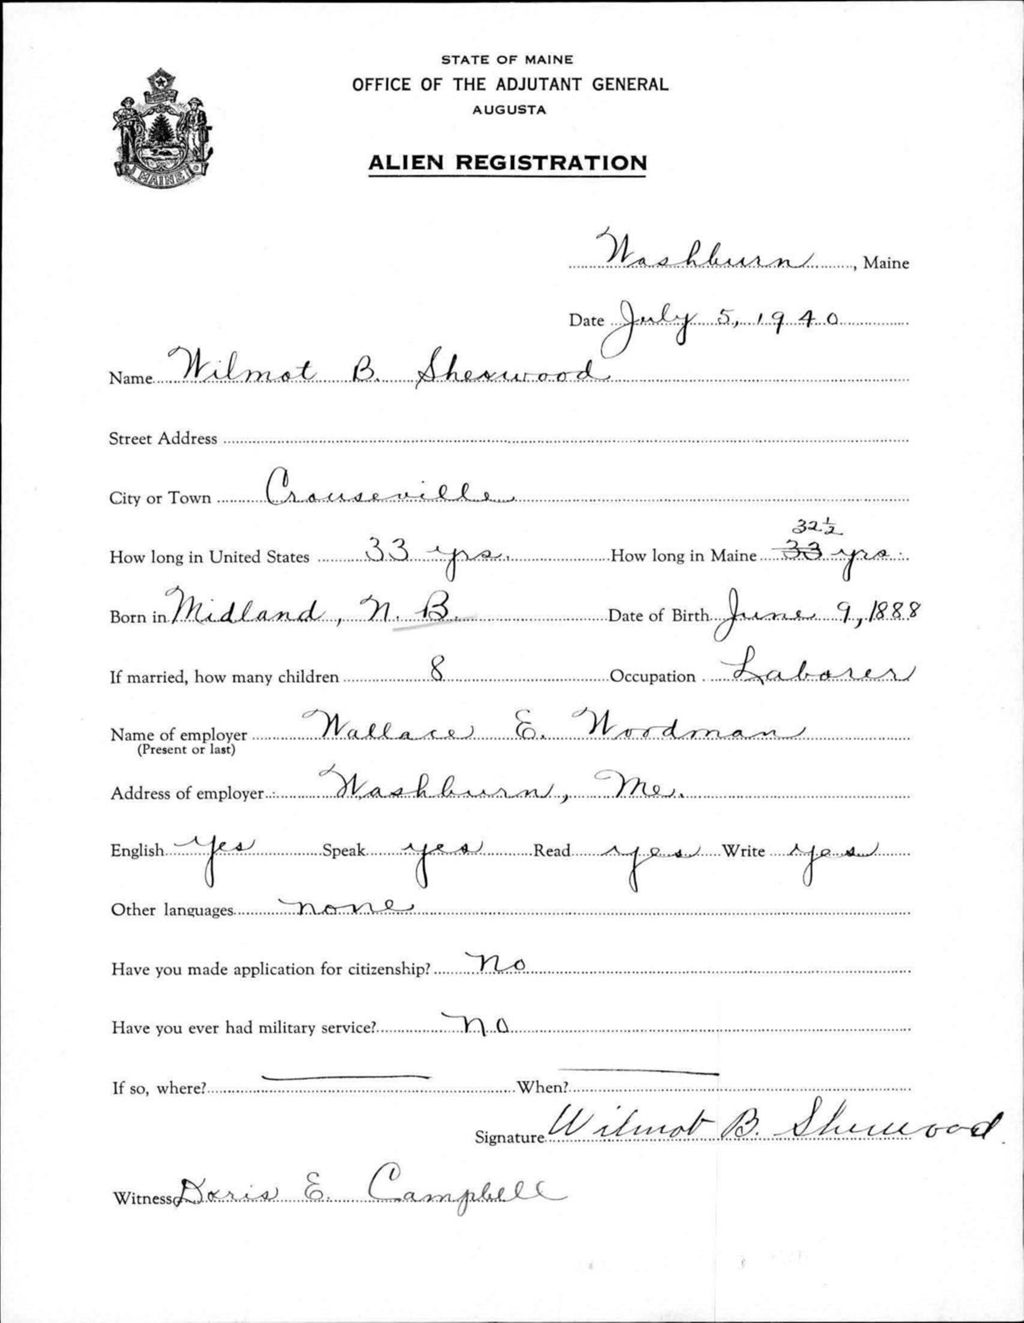 STATE OF MAINE
OFFICE OF THE ADJUTANT GENERAL
AUGUSTA
ALIEN REGISTRATION
MAINE
Washburn, Maine
Date July 5, 1940
Name Wilmot B. Sherwood
Street Address
City or Town Crouseville
32 1/2
How long in United States 33 yrs. How long in Maine 33 yrs.
Born in Midland, N. B. Date of Birth June 9, 1888
If married, how many children 8 Occupation Laborer
Name of employer Wallace E. Woodman
(Present or last)
Address of employer Washburn, Me.
English yes Speak yes Read yes Write yes
Other languages none
Have you made application for citizenship? No
Have you ever had military service? no
If so, where? When?
Signature Wilmot B. Sherwood
Witness Doris E. Campbell